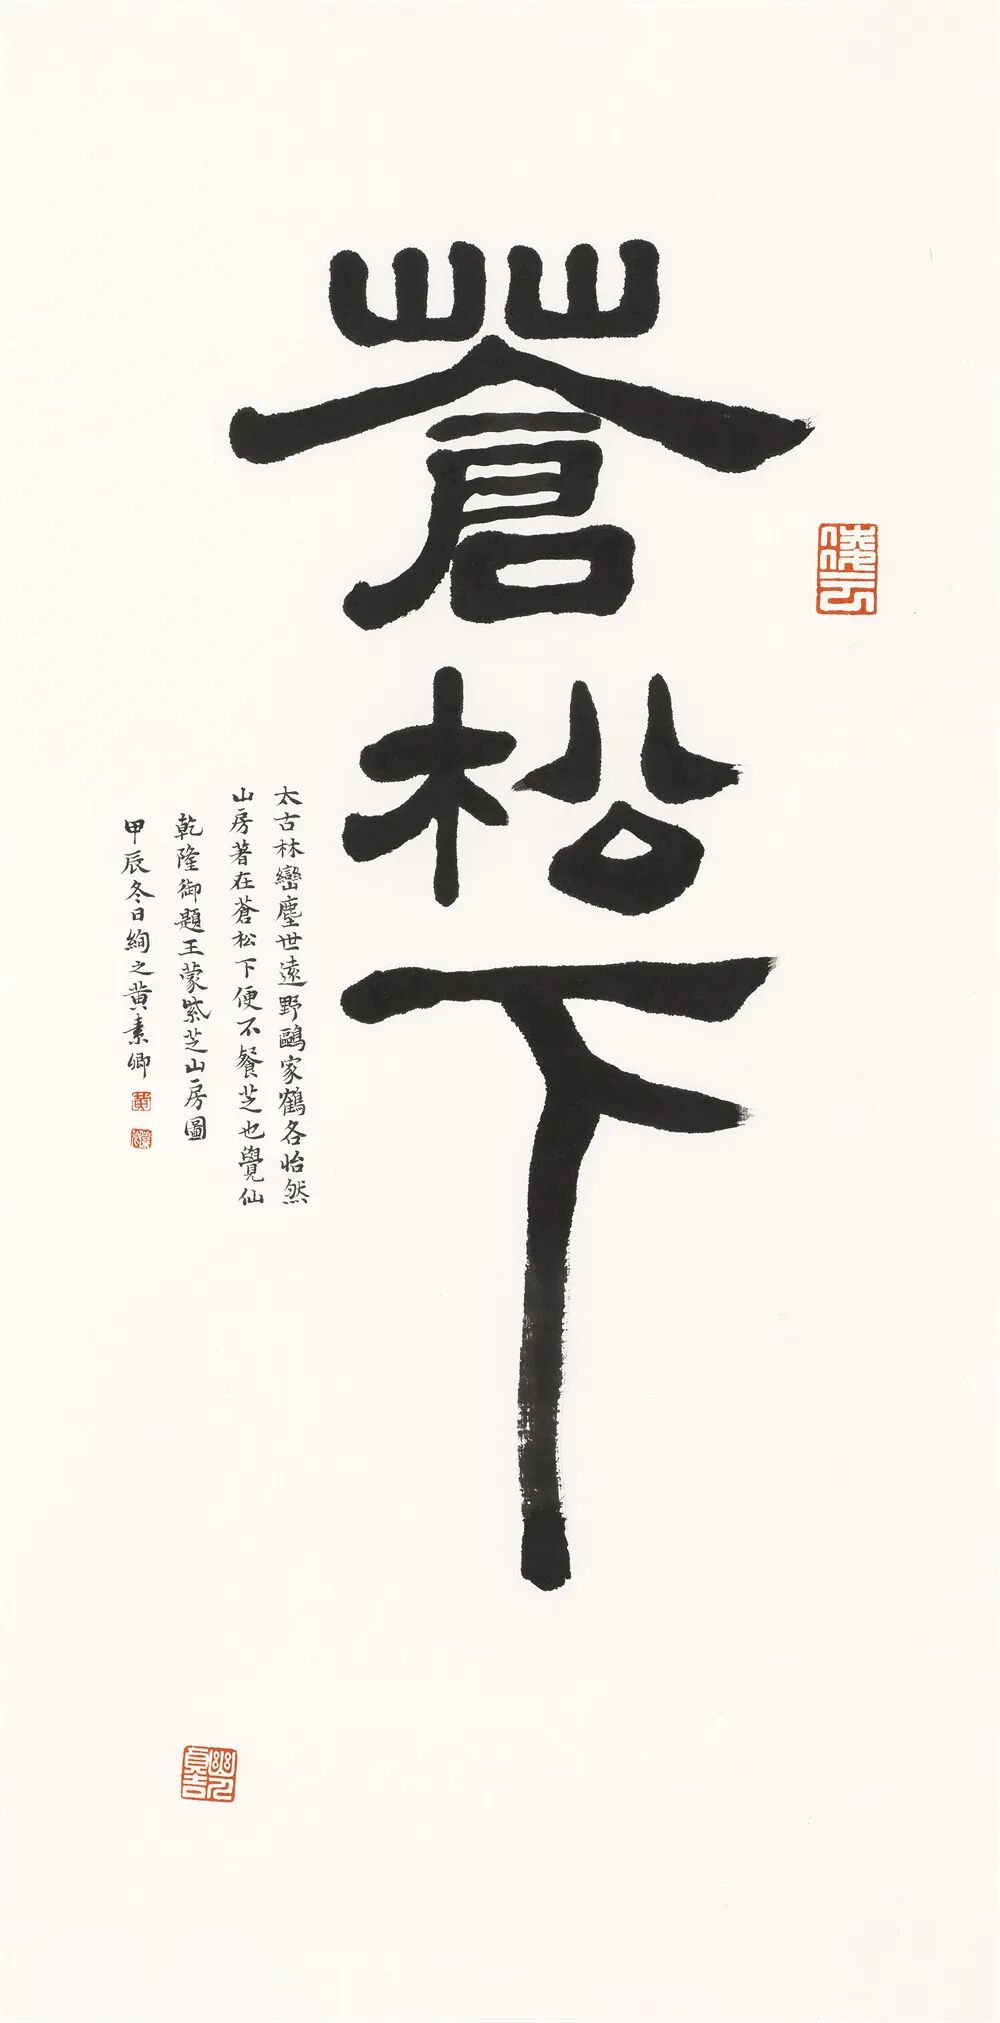 蒼松下
太古林巒塵世遠野鷗家鶴各怡然
山房著在蒼松下便不餐芝也覺仙
乾隆御題王蒙紫芝山房圖
甲辰冬日絢之黄素卿
幽人貞吉